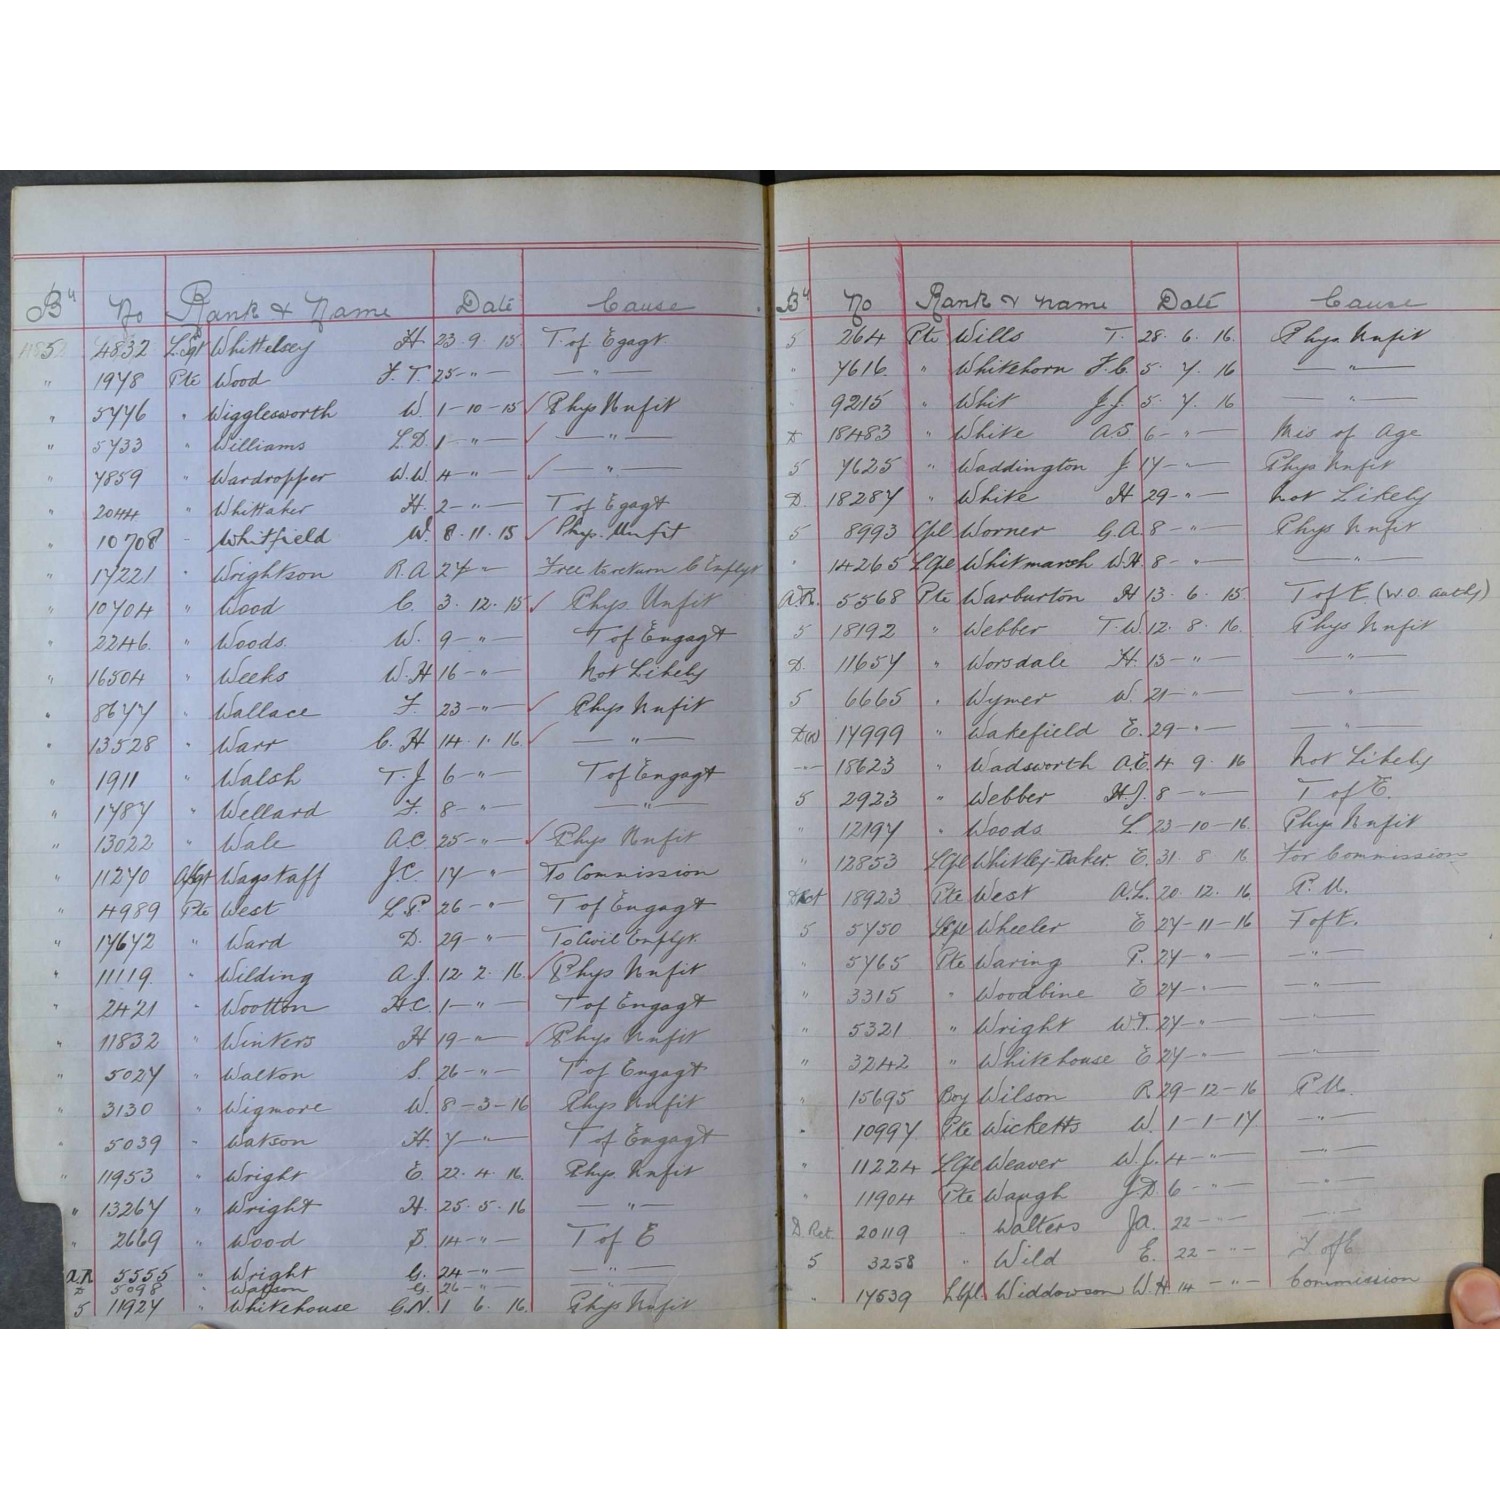 Bn No Rank & Name Date Cause
5 4832 L/Sgt Whittelsey H. 23.9.15 T. of Egagt
" 1978 Pte Wood F.T. 25 - " - - " -
" 5776 " Wigglesworth W. 1-10-15 ✓ Phys Unfit
" 5733 " Williams L.D. 1 - " - ✓ - " -
" 7859 " Wardropper W.W. 4 - " - ✓ - " -
" 2044 " Whittaker H. 2 - " - T of Egagt
" 10708 " Whitfield W. 8.11.15 ✓ Phys. Unfit
" 17221 " Wrightson R.A 27 " - Free to return C Emplyt
" 10704 " Wood C. 3.12.15 ✓ Phys Unfit
" 2246 " Woods. W. 9 - " - T of Engagt
" 16504 " Weeks W.H 16 - " - Not Likely
" 8677 " Wallace F. 23 - " - ✓ Phys Unfit
" 13528 " Warr C.H 14.1.16 ✓ - " -
" 1911 " Walsh T.J 6 - " - T of Engagt
" 1787 " Wellard F. 8 - " - - " -
" 13022 " Wale A.C. 25 - " - ✓ Phys Unfit
" 11270 A/Sgt Wagstaff J.C. 17 " - To Commission
" 4989 Pte West L.P. 26 - " - T of Engagt
" 17672 " Ward D. 29 - " - To Civil Emplyt.
" 11119 " Wilding A.J. 12.2.16 ✓ Phys Unfit
" 2421 " Wootton H.C. 1 - " - T of Engagt
" 11832 " Winters H 19 - " - ✓ Phys Unfit
" 5027 " Walton S. 26 - " - T of Engagt
" 3130 " Wigmore W. 8-3-16 Phys Unfit
" 5039 " Watson H. 7 - " - T of Engagt
" 11953 " Wright E. 22.4.16. Phys. Unfit
" 13267 " Wright H. 25.5.16 - " -
" 2669 " Wood S. 14 - " - T of E
A.R 5555 " Wright G. 24 - " - - " -
D 5098 " Watson G. 26 - " - - " -
5 11927 " Whitehouse G.N. 1 6.16. Phys Unfit
Bn No Rank & Name Date Cause
5 264 Pte Wills T. 28.6.16. Phys Unfit
" 7616 " Whitehorn F.C. 5.7.16 - " -
" 9215 " Whit J.J. 5.7.16 - " -
D 18483 " White A.S. 6 - " - Mis of Age
5 7625 " Waddington J. 17 - " - Phys Unfit
D. 18287 " White H 29 - " - Not Likely
5 8993 Cpl Worner G.A. 8 - " - Phys Unfit
" 14265 L/Cpl Whitmarsh W.H. 8 - " - - " -
A.R. 5568 Pte Warburton H 13.6.15 T of E. (W.O. authy)
5 18192 " Webber T.W. 12.8.16. Phys Unfit
D. 11657 " Worsdale H. 13 - " - - " -
5 6665 " Wymer W. 21 - " - - " -
17999 " Wakefield E. 29 - " - - " -
- " - 18623 " Wadsworth A.E. 4 9.16 Not Likely
5 2923 " Webber H.J. 8 - " - T of E.
" 12197 " Woods L 23-10-16. Phys Unfit
" 12853 L/Cpl Whitley-Baker. E. 31.8 16 For Commission
D Ret 18923 Pte West A.L. 20.12.16. P.U.
5 5750 L/Cpl Wheeler E 27-11-16 T of E.
" 5765 Pte Waring P. 27 - " - - " -
" 3315 " Woodbine E 27 - " - - " -
" 5321 " Wright W.T. 27 - " - - " -
" 3242 " Whitehouse E 27 - " - - " -
" 15695 Boy Wilson R 29-12-16 P.U.
" 10997 Pte Wicketts W. 1-1-17 - " -
" 11224 L/Cpl Weaver W.J. 4 - " - - " -
" 11904 Pte Waugh J.D. 6 - " - - " -
D. Ret. 20119 " Walters J.A. 22 - " - - " -
5 3258 " Wild E. 22 - " - T. of E
" 17539 L/Cpl. Widdowson W.H. 14 - " - Commission